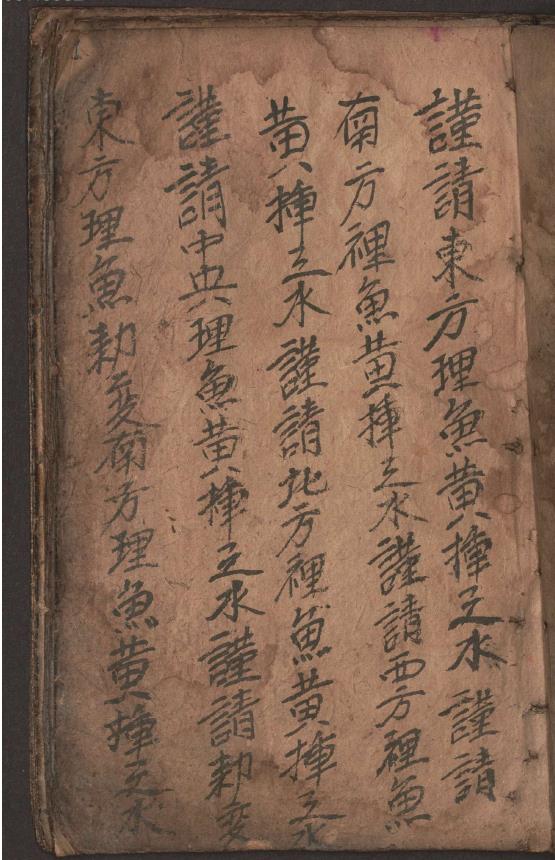 謹請東方理魚黄揮之水謹請
南方裡魚黄揮之水謹請西方裡魚
黄揮之水謹請北方裡魚黄揮之水
謹請中央理魚黄揮之水謹請勅变
東方理魚勅变南方理魚黄揮之水